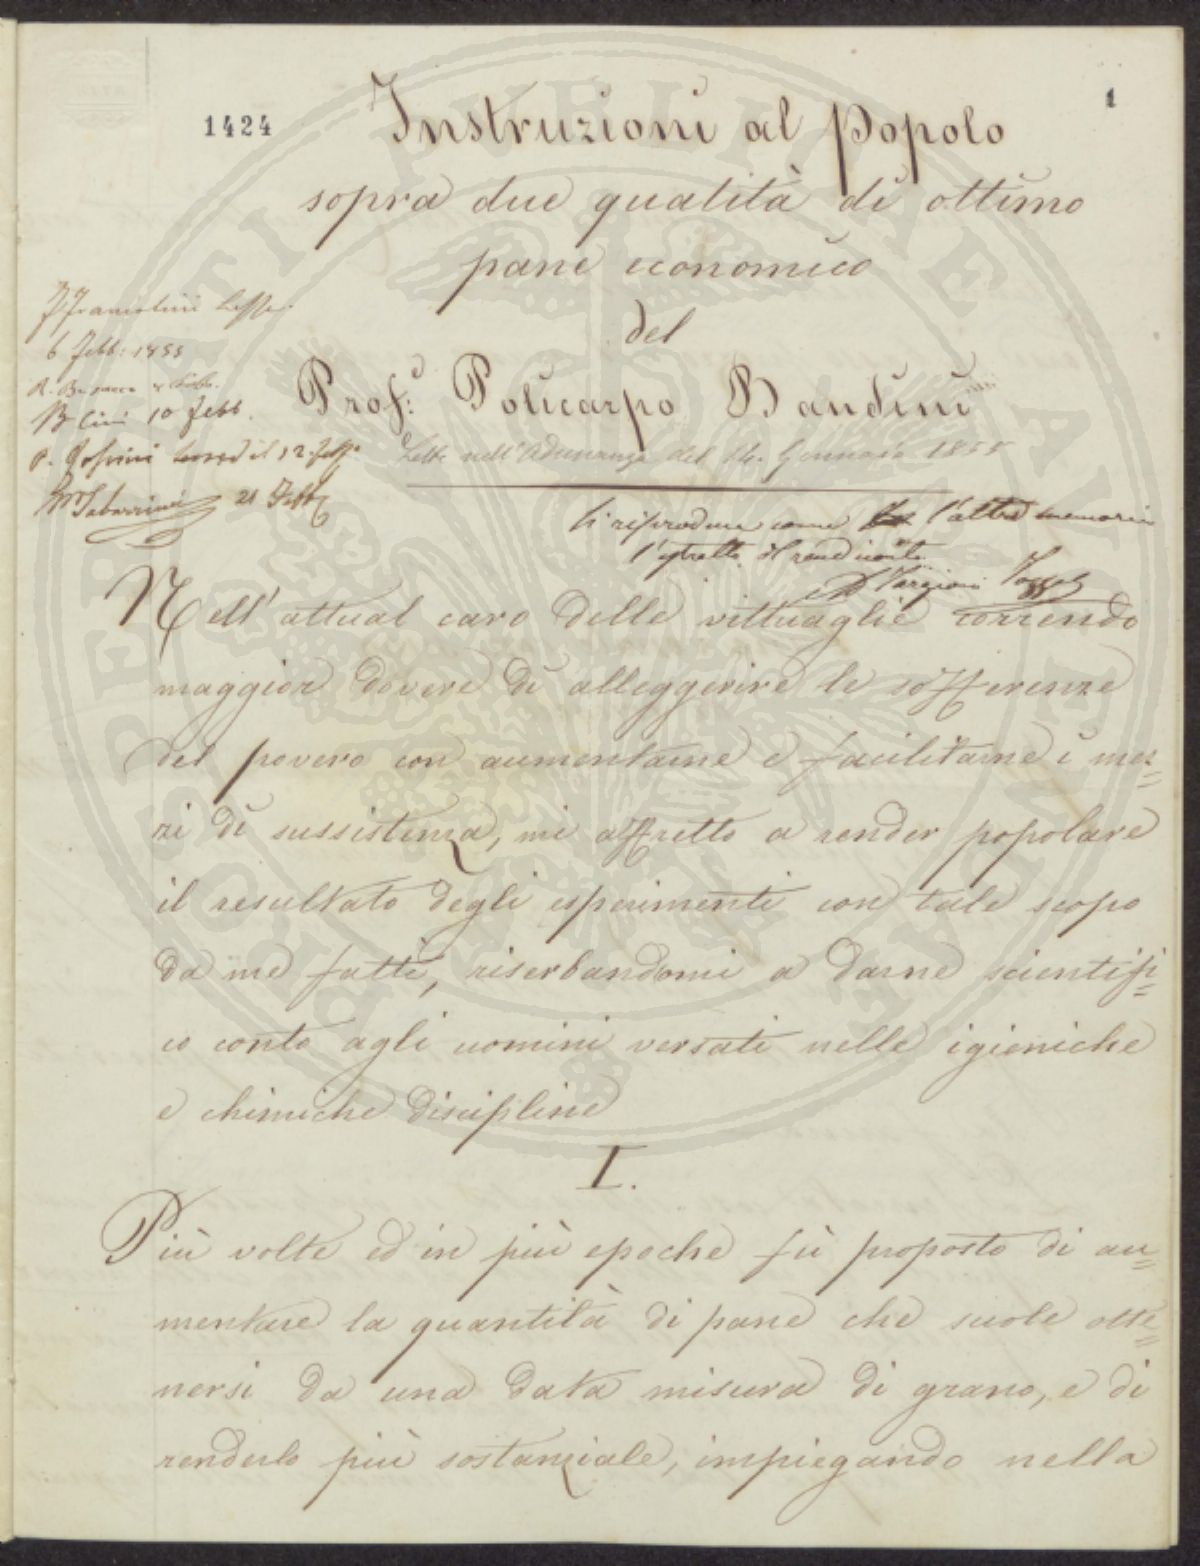 1424
1
Instruzioni al Popolo
sopra due qualità di ottimo
pane economico
del
Prof: Policarpo Bandini
Letta nell'Adunanza del 14. Gennaio 1855
6 Febb: 1855
10 Febb.
il 12. Febb.
Tabarrini 21 Febb
Si riproduce come l'altra memoria
l'estratto il rendiconto
Targioni Tozzetti
Nell'attual caro delle vittuaglie correndo
maggior dovere di alleggerire le sofferenze
del povero con aumentarne e facilitarne i mez=
zi di sussistenza, mi affretto a render popolare
il resultato degli esperimenti con tale scopo
da me fatti, riserbandomi a darne scientifi=
co conto agli uomini versati nelle igieniche
e chimiche discipline
I.
Più volte ed in più epoche fù proposto di au=
mentare la quantità di pane che suole otte=
nersi da una data misura di grano, e di
renderlo più sostanziale, impiegando nella
PROSPERITATI PUBLICAE AUGENDAE